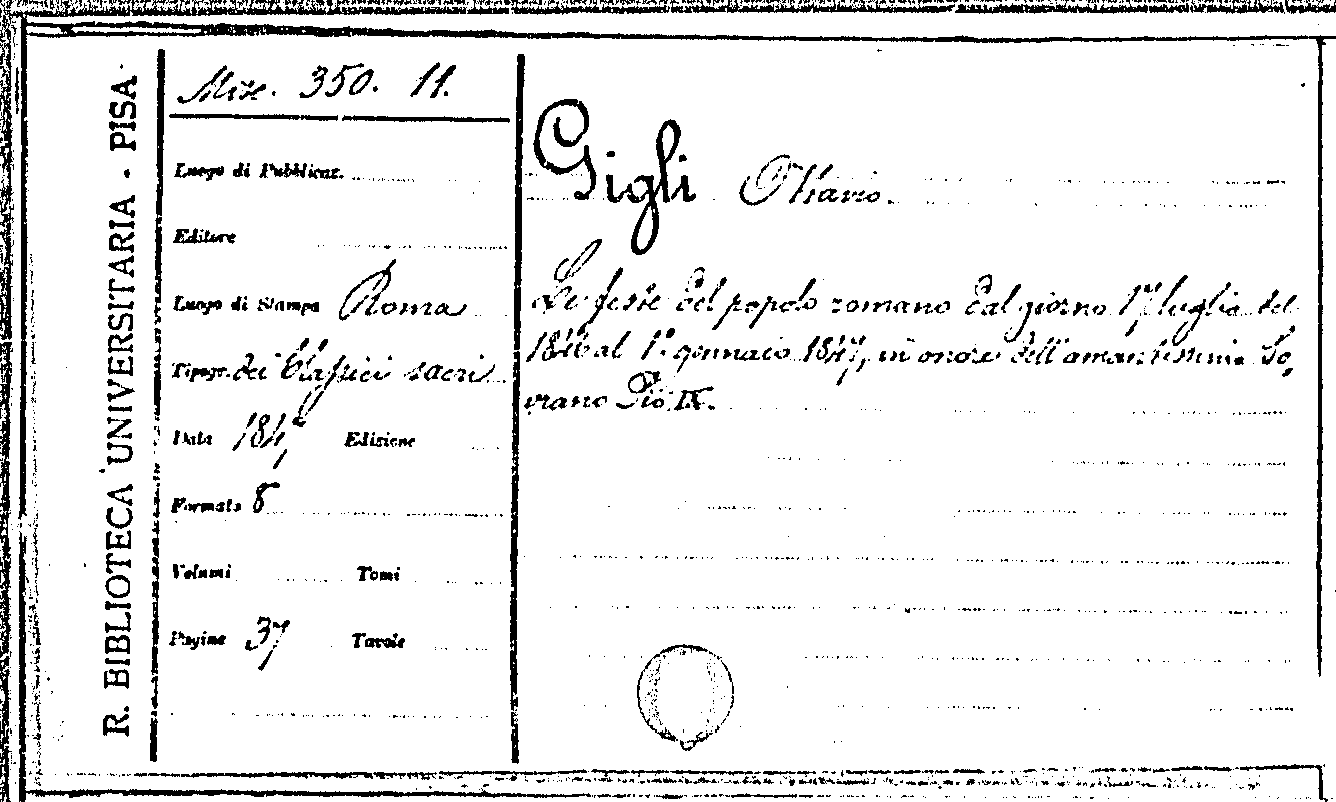 R. BIBLIOTECA UNIVERSITARIA - PISA
Misc. 350. 11.
Luogo di Pubblicaz.
Editore
Luogo di Stampa Roma
Tipogr. dei Classici sacri
Data 1847 Edizione
Formato 8
Volumi Tomi
Pagine 37 Tavole
Gigli Ottavio.
Le feste del popolo romano dal giorno 17 luglio del
1846 al 1° gennaio 1847, in onore dell'amantissimo So,
vrano Pio IX.